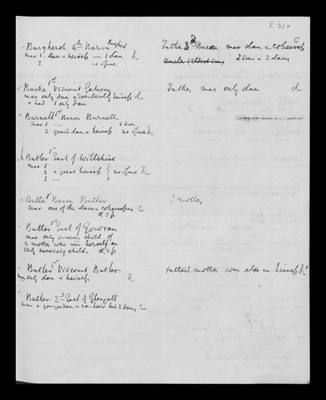 Burghersh 4th Baron
mar 1. dau & heiress — 1 dau h
2 no issue
Father 3rd Baron mar dau & coheiress
2 sons & 2 daus
Burke 1st Viscount Galway
mar only dau & eventually heiress h
& had 1 only dau
Father mar only dau d
Burnell Baron Burnell
mar 1 — 1 son
2 grand dau & heiress no issue h
Butler 1st Earl of Wiltshire
mar 1 —
2 & great heiress } no issue h
3 —
Butler Baron Butler
mar one of the daus & coheiresses
d.s.p.
? mother
Butler 1st Earl of Gowran
mar only surviving child of
a mother who was herself an
only surviving child. d.s.p.
Butler 1st Viscount Butler
only dau & heiress h
father's mother was also an heiress h
Butler 2nd Earl of Glengall
mar & younger dau & co-heir had 2 daus